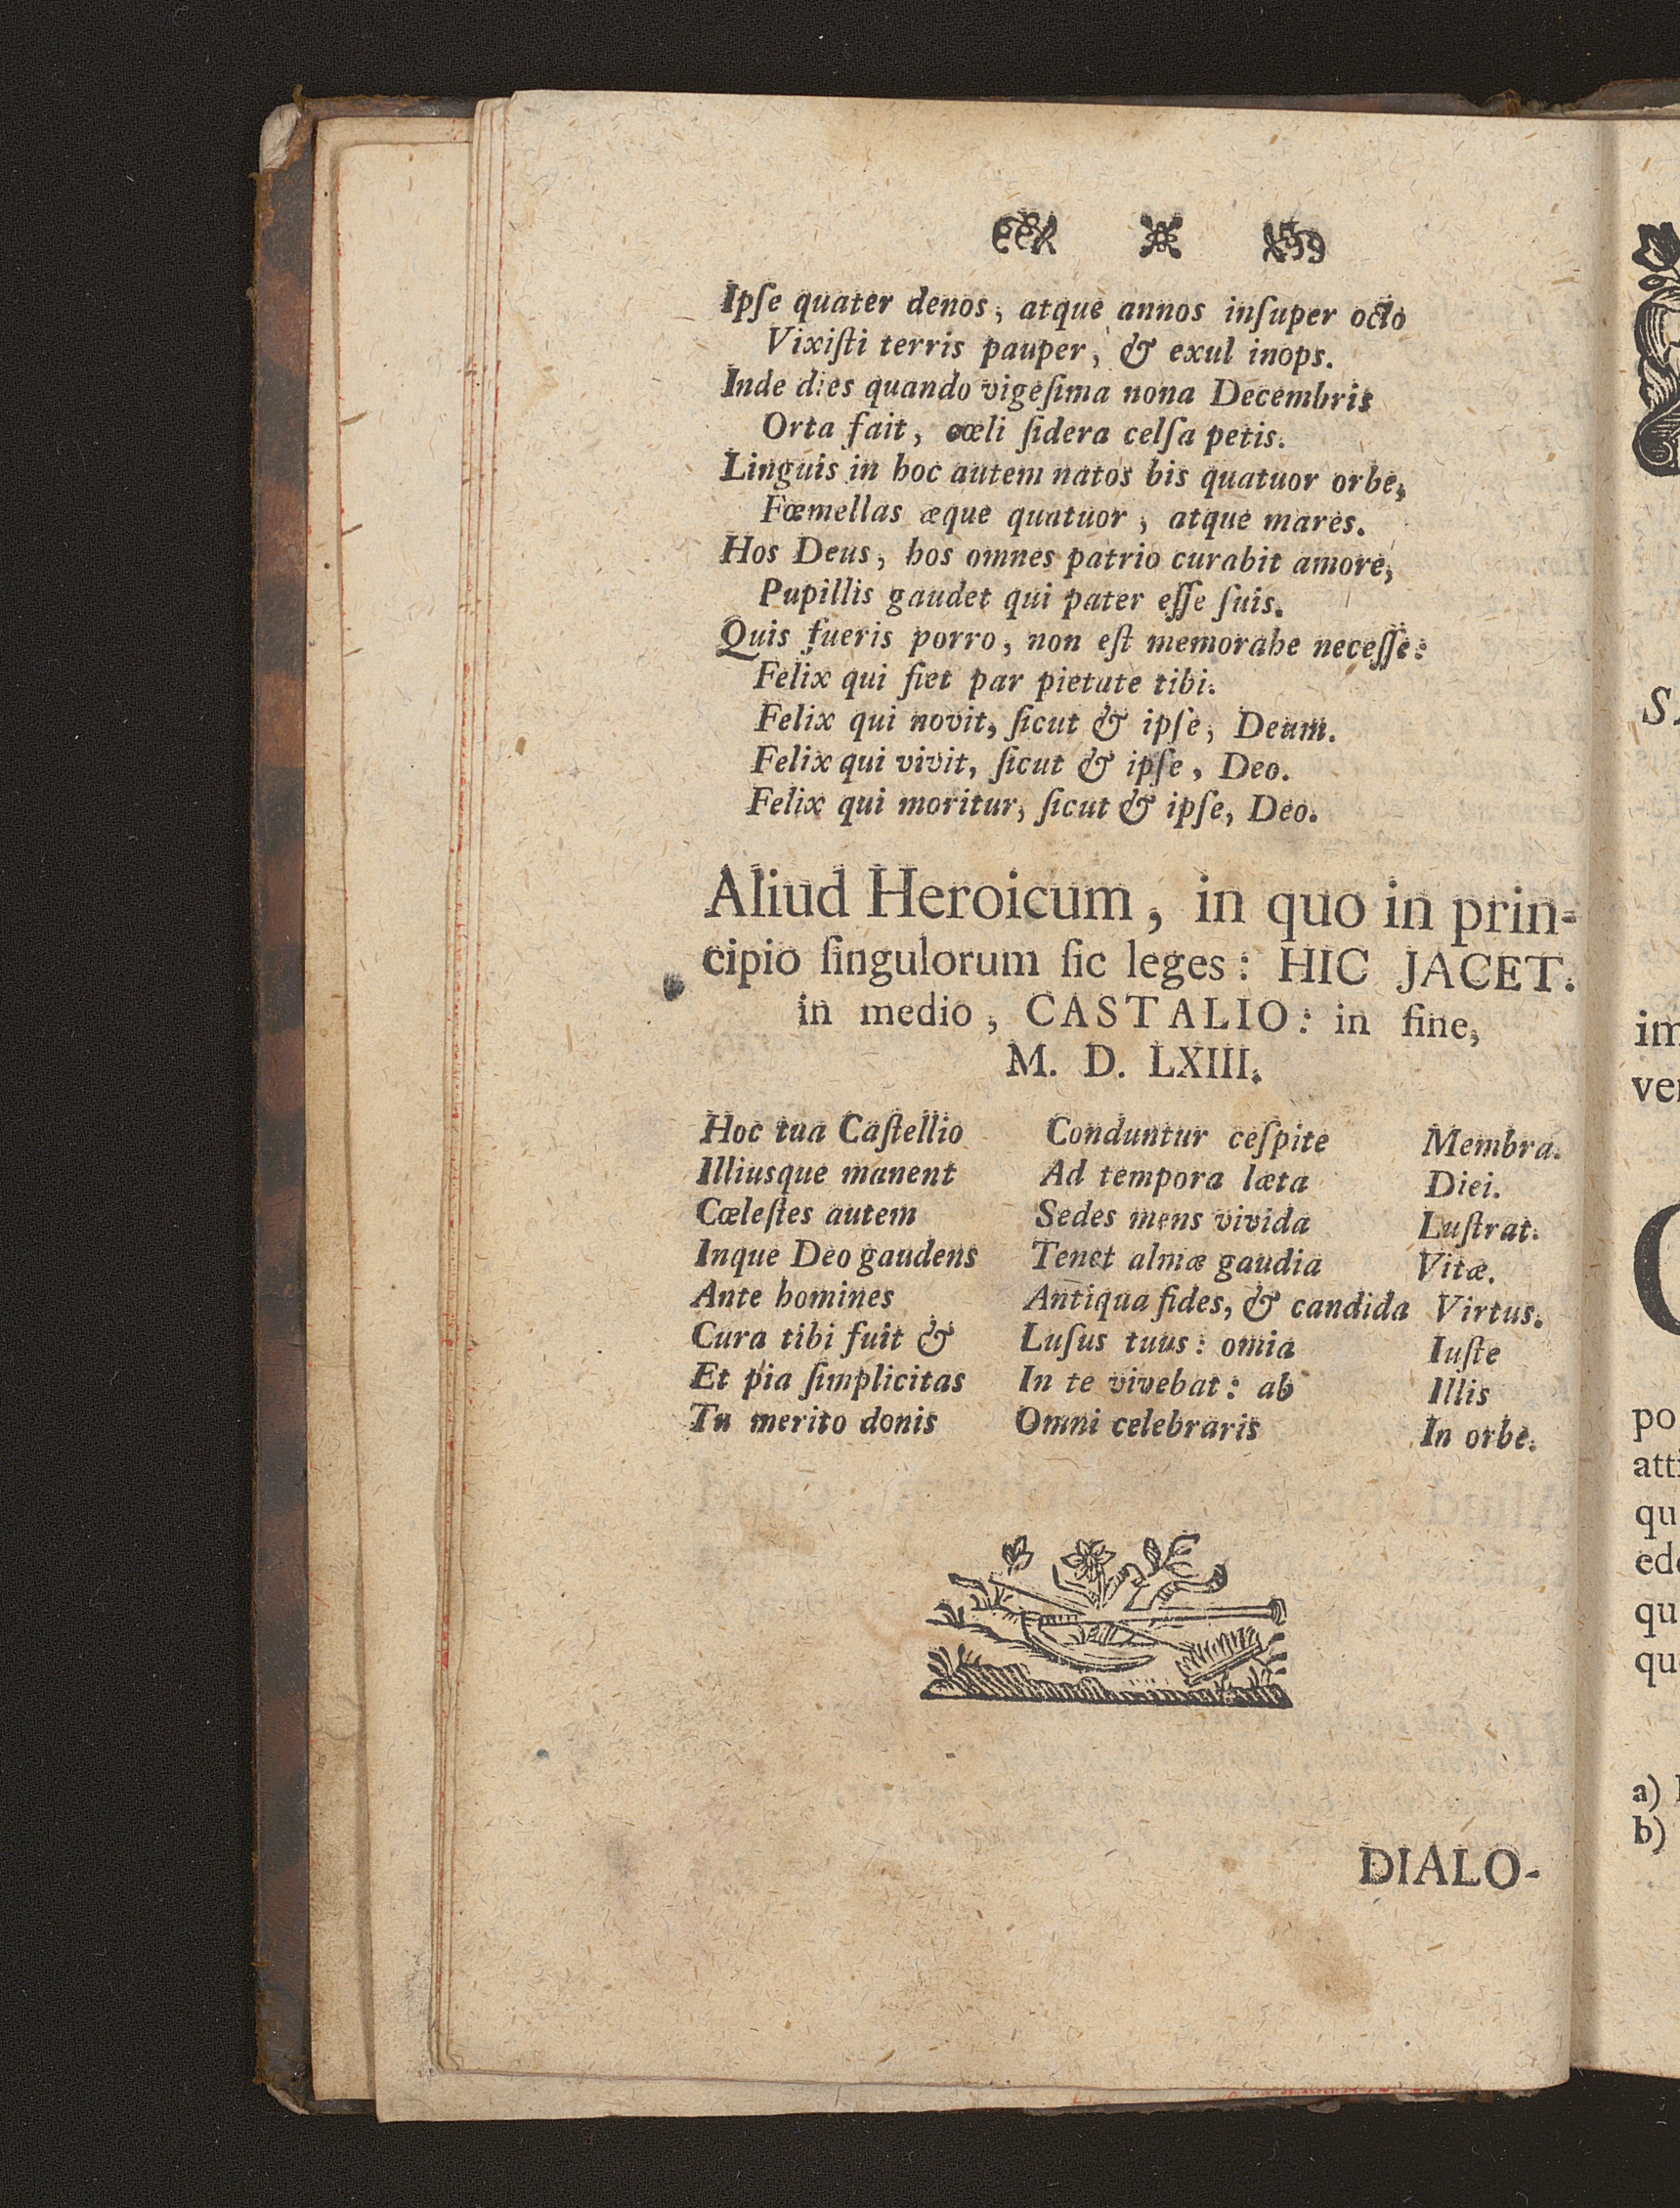 Ipſe quater denos, atque annos inſuper octo
Vixiſti terris pauper, & exul inops.
Inde dies quando vigeſima nona Decembris
Orta fait, cœli ſidera celſa petis.
Linguis in hoc autem natos bis quatuor orbe,
Fœmellas æque quatuor, atque mares.
Hos Deus, hos omnes patrio curabit amore,
Pupillis gaudet qui pater eſſe ſuis.
Quis fueris porro, non eſt memorahe neceſſe:
Felix qui fiet par pietate tibi.
Felix qui novit, ſicut & ipſe, Deum.
Felix qui vivit, ſicut & ipſe, Deo.
Felix qui moritur, ſicut & ipſe, Deo.
Aliud Heroicum, in quo in prin-
cipio ſingulorum ſic leges: HIC JACET.
in medio, CASTALIO: in fine,
M. D. LXIII.
Hoc tua Caſtellio Conduntur ceſpite Membra.
Illiusque manent Ad tempora læta Diei.
Cœleſtes autem Sedes mens vivida Luſtrat.
Inque Deo gaudens Tenet almæ gaudia Vitæ.
Ante homines Antiqua fides, & candida Virtus.
Cura tibi fuit & Luſus tuus: omia Iuſte
Et pia ſimplicitas In te vivebat: ab Illis
Tu merito donis Omni celebraris In orbe.
DIALO-
im
po
qu
qu
a)
b)